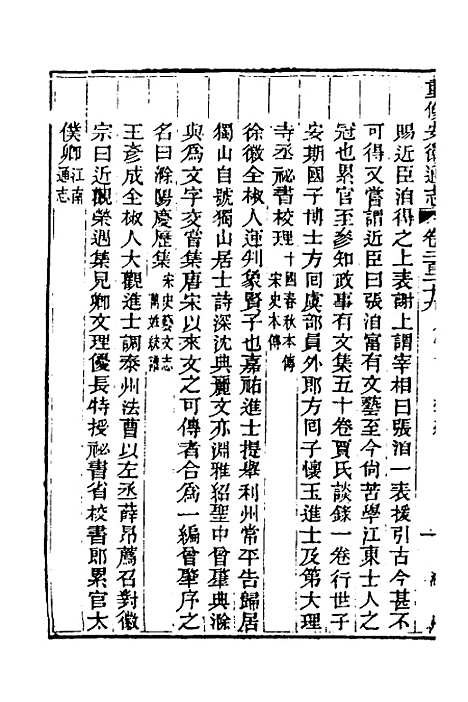 重修安徽通志 卷二百二十九
賜近臣洎得之上表謝上謂宰相曰張洎一表援引古今甚不
可得又嘗謂近臣曰張洎富有文藝至今尙苦學江東士人之
冠也累官至參知政事有文集五十卷賈氏談錄一卷行世子
安期國子博士方回虞部員外郎方回子懷玉進士及第大理
寺丞祕書校理十國春秋本傳宋史本傳
徐徽全椒人運判象賢子也嘉祐進士提舉利州常平告歸居
獨山自號獨山居士詩深沈典麗文亦淵雅紹聖中曾肇典滁
與爲文字交嘗集唐宋以來文之可傳者合爲一編曾肇序之
名曰滁陽慶歷集宋史藝文志萬姓統譜
王彥成全椒人大觀進士調泰州法曹以左丞薛昂薦召對徽
宗曰近觀榮遇集見卿文理優長特授祕書省校書郎累官太
僕卿江南通志